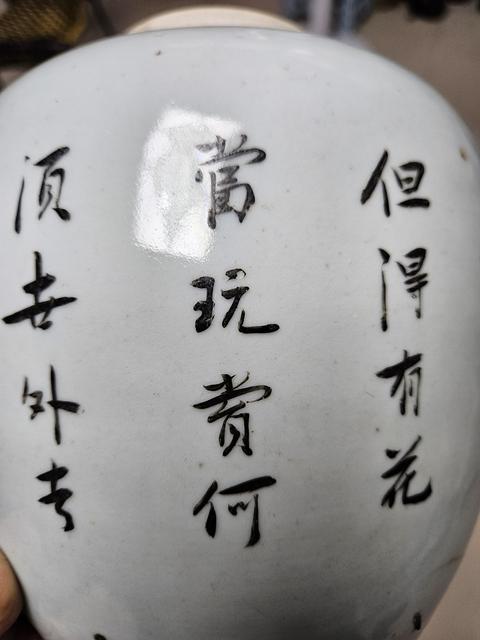 但得有花
當玩賞何
須世外去